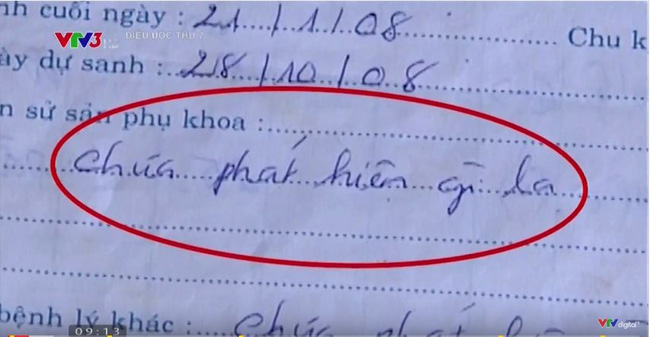 nh cuối ngày : 21/1/08 Chu k
VTV3 ĐIỀU ƯỚC THỨ 7
ày dự sanh : 28/10/08
n sử sản phụ khoa :
chưa phát hiện gì lạ
bệnh lý khác : chưa phát
09:13
VTV digital